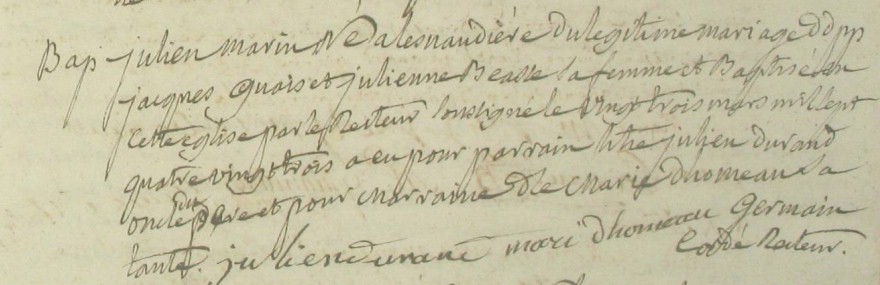 Bap julien marin Né alesnaudière du legitime mariage ddpp
jacques Guais et julienne Beasse sa femme et Baptisé en
cette église par le Recteur soussigné le vingt trois mars mil sept
quatre vingt trois a eu pour parrain julien durand
oncle du pere et pour Marraine dlle Marie dhomeau sa
tante. julien durand mari dhomeau Germain
Recteur.